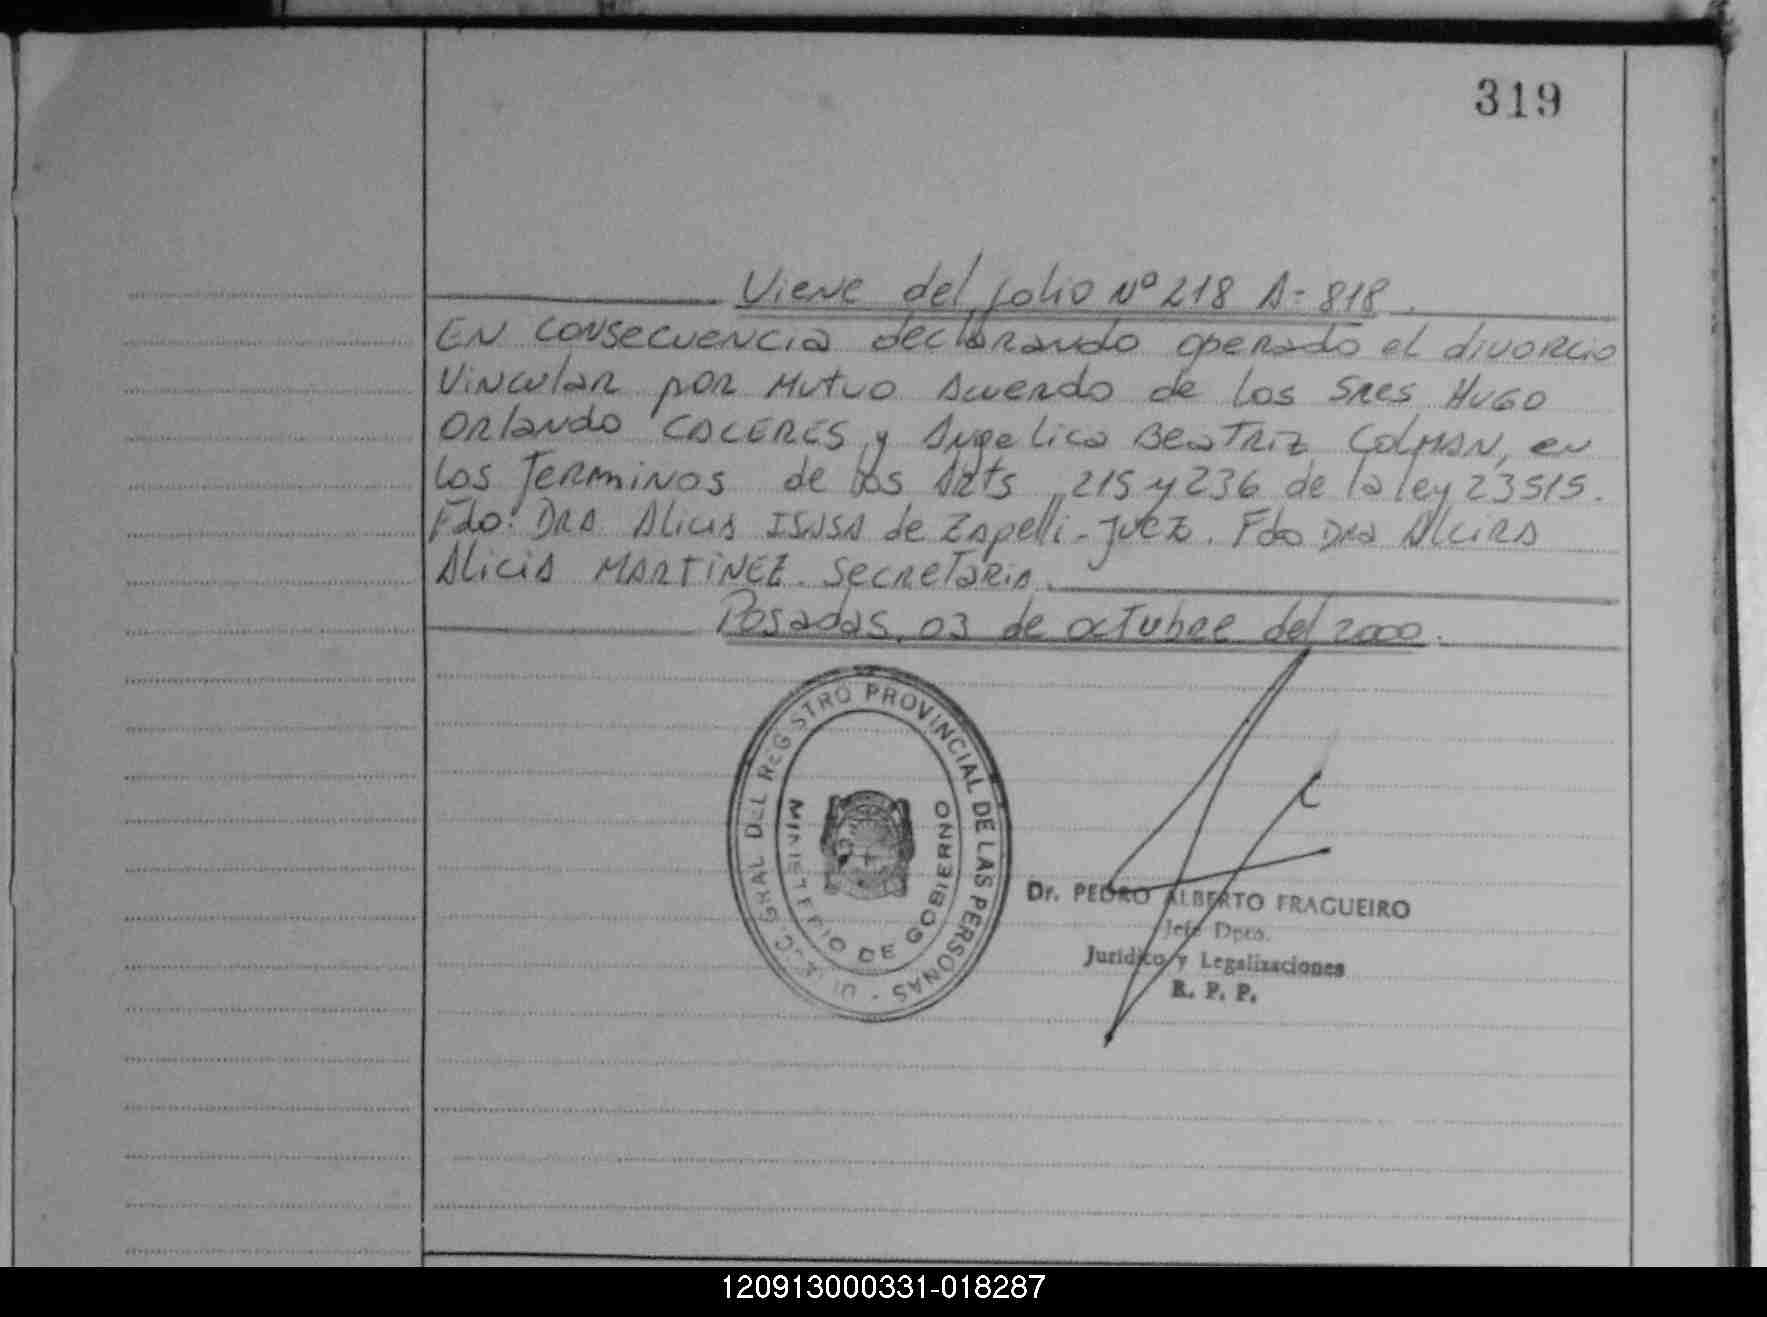 319
Viene del folio Nº 218 A-818.
En consecuencia declarando operado el divorcio
Vincular por Mutuo Acuerdo de los Sres Hugo
Orlando CACERES y Angelica Beatriz COLMAN, en
los Terminos de los Arts 215 y 236 de la ley 23515.
Fdo: DRA. Alicia de Zapelli - Juez. Fdo Dra Alcira
Alicia MARTINEZ. Secretaria.
Posadas, 03 de octubre del 2000.
GRAL DEL REGISTRO PROVINCIAL DE LAS PERSONAS
MINISTERIO DE GOBIERNO
Dr. PEDRO ALBERTO FRAGUEIRO
Jefe Dpto.
Jurídico y Legalizaciones
R. P. P.
120913000331-018287